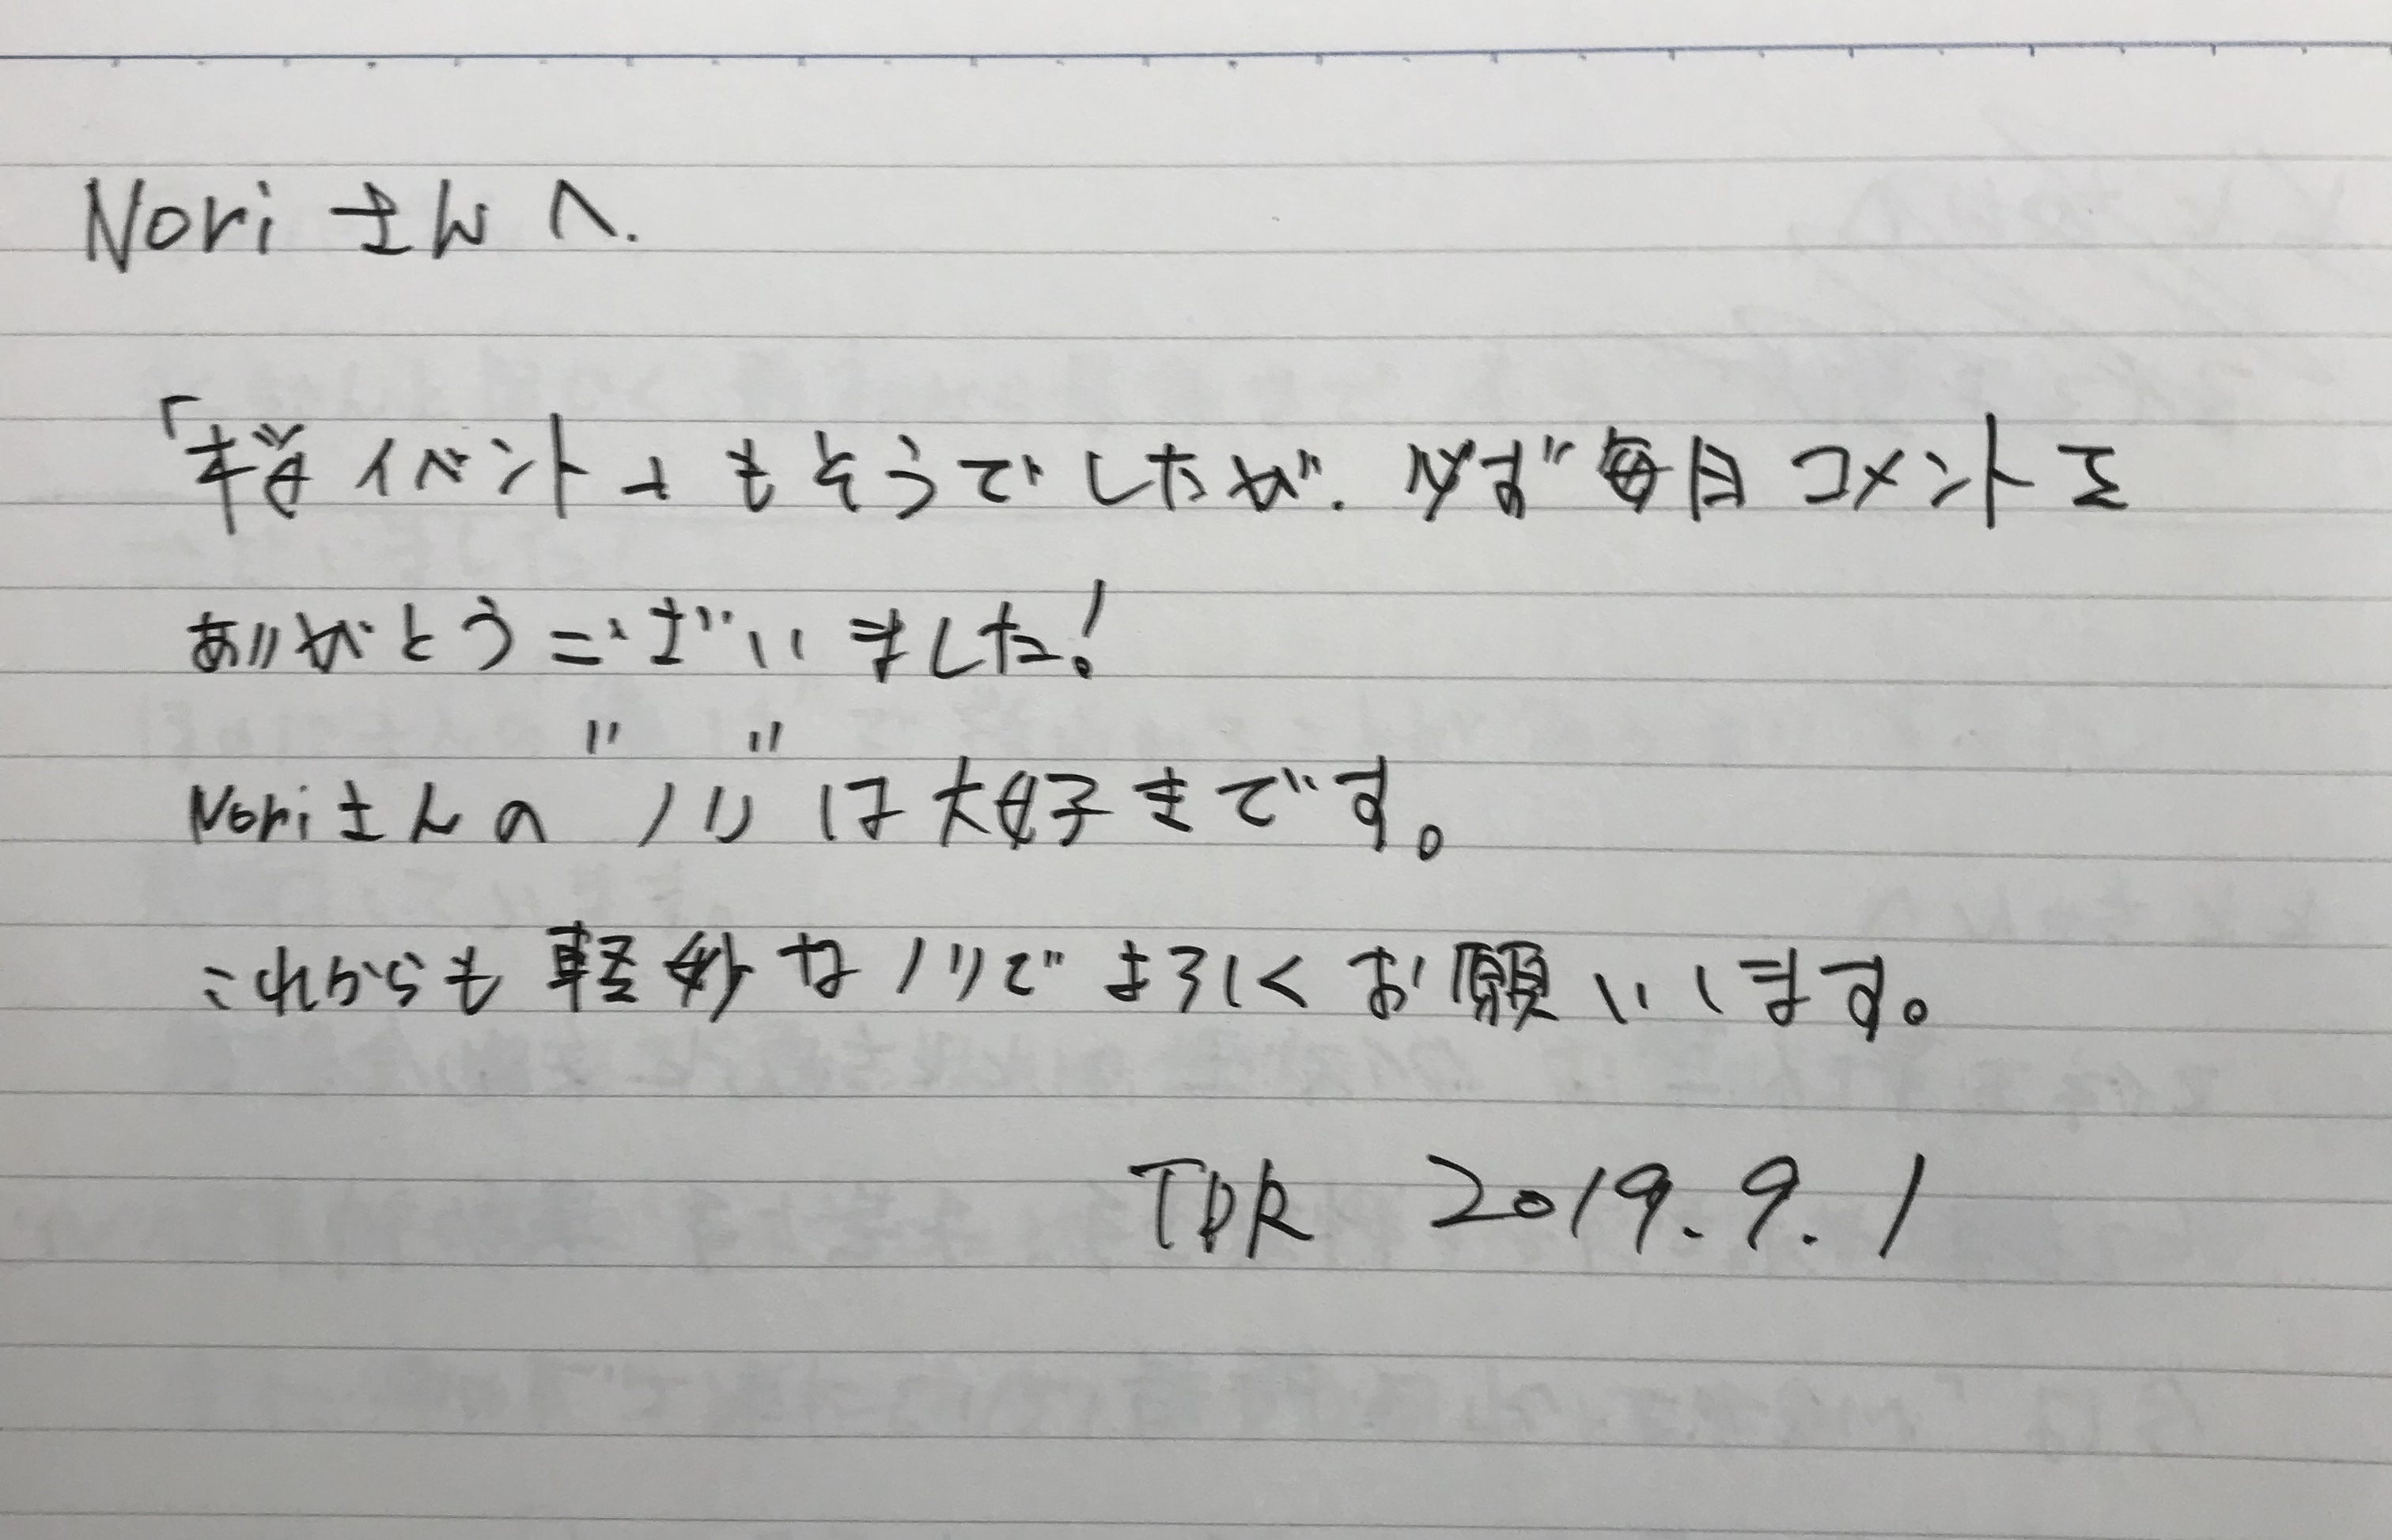 Noriさんへ.
「棒イベント」もそうでしたが、必ず毎日コメントを
ありがとうございました!
Noriさんの"ノリ"は大好きです。
これからも軽妙なノリでよろしくお願いいします。
TDR 2019.9.1